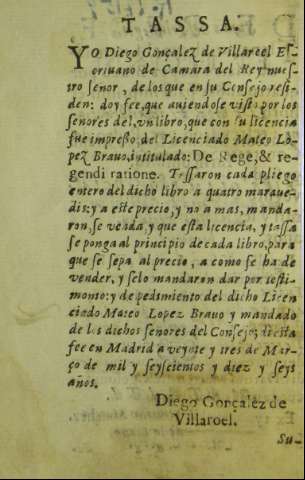 TASSA.
YO Diego Gonçalez de Villareel Es-
criuano de Camara del Rey nues-
tro señor, de los que en su Consejo resi-
den: doy fee, que auiendose visto por los
señores del, vn libro, que con su licencia
fue impresso del Licenciado Mateo Lo-
pez Brauo, intitulado: De Rege, & re-
gendi ratione. Tassaron cada pliego
entero del dicho libro a quatro maraue-
dis: y a este precio, y no a mas, manda-
ron, se venda, y que esta licencia, y tassa
se ponga al principio de cada libro, para
que se sepa al precio, a como se ha de
vender, y se lo mandaron dar por testi-
monio: y de pedimiento del dicho Licen
ciado Mateo Lopez Brauo y mandado
de los dichos señores del Consejo, di esta
fee en Madrid a veynte y tres de Mar-
ço de mil y seyscientos y diez y seys
años.
Diego Gonçalez de
Villaroel.
Su-